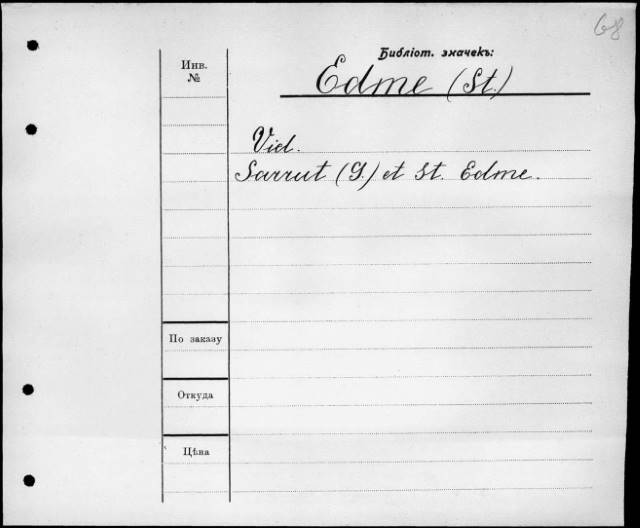 68
Библіот. значекъ:
Инв.
№
Edme (St.)
Vid.
Sarrut (G.) et St. Edme.
По заказу
Откуда
Цѣна